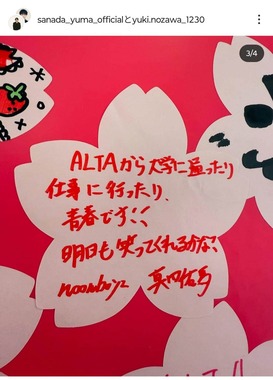 sanada_yuma_officialとyuki.nozawa_1230
3/4
ALTAから大学に通ったり
仕事に行ったり、
青春です!!
明日も笑ってくれるかな?
noon boyz 真田佑馬